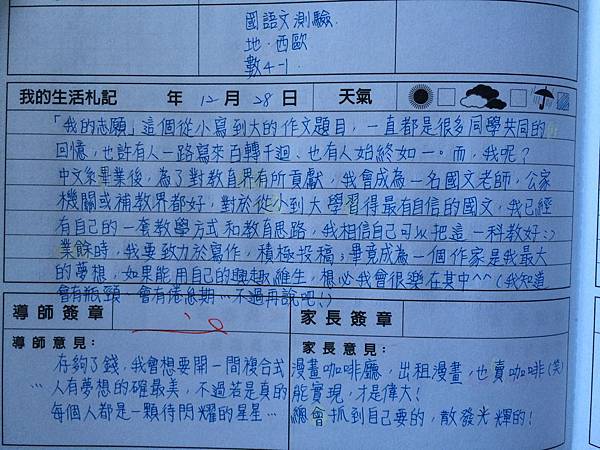 國語文測驗.
地.西歐
數4-1.
我的生活札記 年 12 月 28 日 天氣
「我的志願」這個從小寫到大的作文題目，一直都是很多同學共同的
回憶，也許有人一路寫來百轉千迴、也有人始終如一。而，我呢？
中文系畢業後，為了對教育界有所貢獻，我會成為一名國文老師，公家
機關或補教界都好，對於從小到大學習得最有自信的國文，我已經
有自己的一套教學方式和教育思路，我相信自己可以把這一科教好:)
業餘時，我要致力於寫作，積極投稿；畢竟成為一個作家是我最大
的夢想，如果能用自己的興趣維生，想必我會很樂在其中^^(我知道
會有瓶頸、會有倦怠期…不過再說吧!)
導師簽章 家長簽章
導師意見： 家長意見：
存夠了錢，我會想要開一間複合式漫畫咖啡廳，出租漫畫，也賣咖啡(笑)
…人有夢想的確最美，不過若是真的能實現，才是偉大!
每個人都是一顆待閃耀的星星…總會抓到自己要的，散發光輝的!